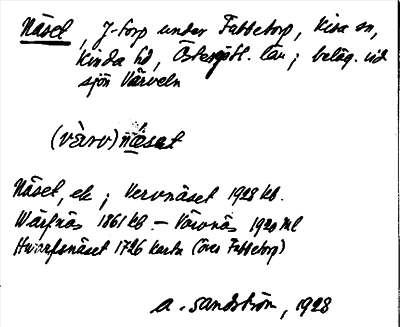 Näset, J-torp under Fabbetorp, Kisa sn,
Kinda hd, Östergötl. län; beläg. vid
sjön Värveln
(vèrv)næset
Näset, ek; Vervnäset 1928 kb.
Wärfnäs 1861 kb. - Värvnäs 1920 ml
Hwarfsnäset 1726 karta (över Fabbetorp)
A. Sandström, 1928